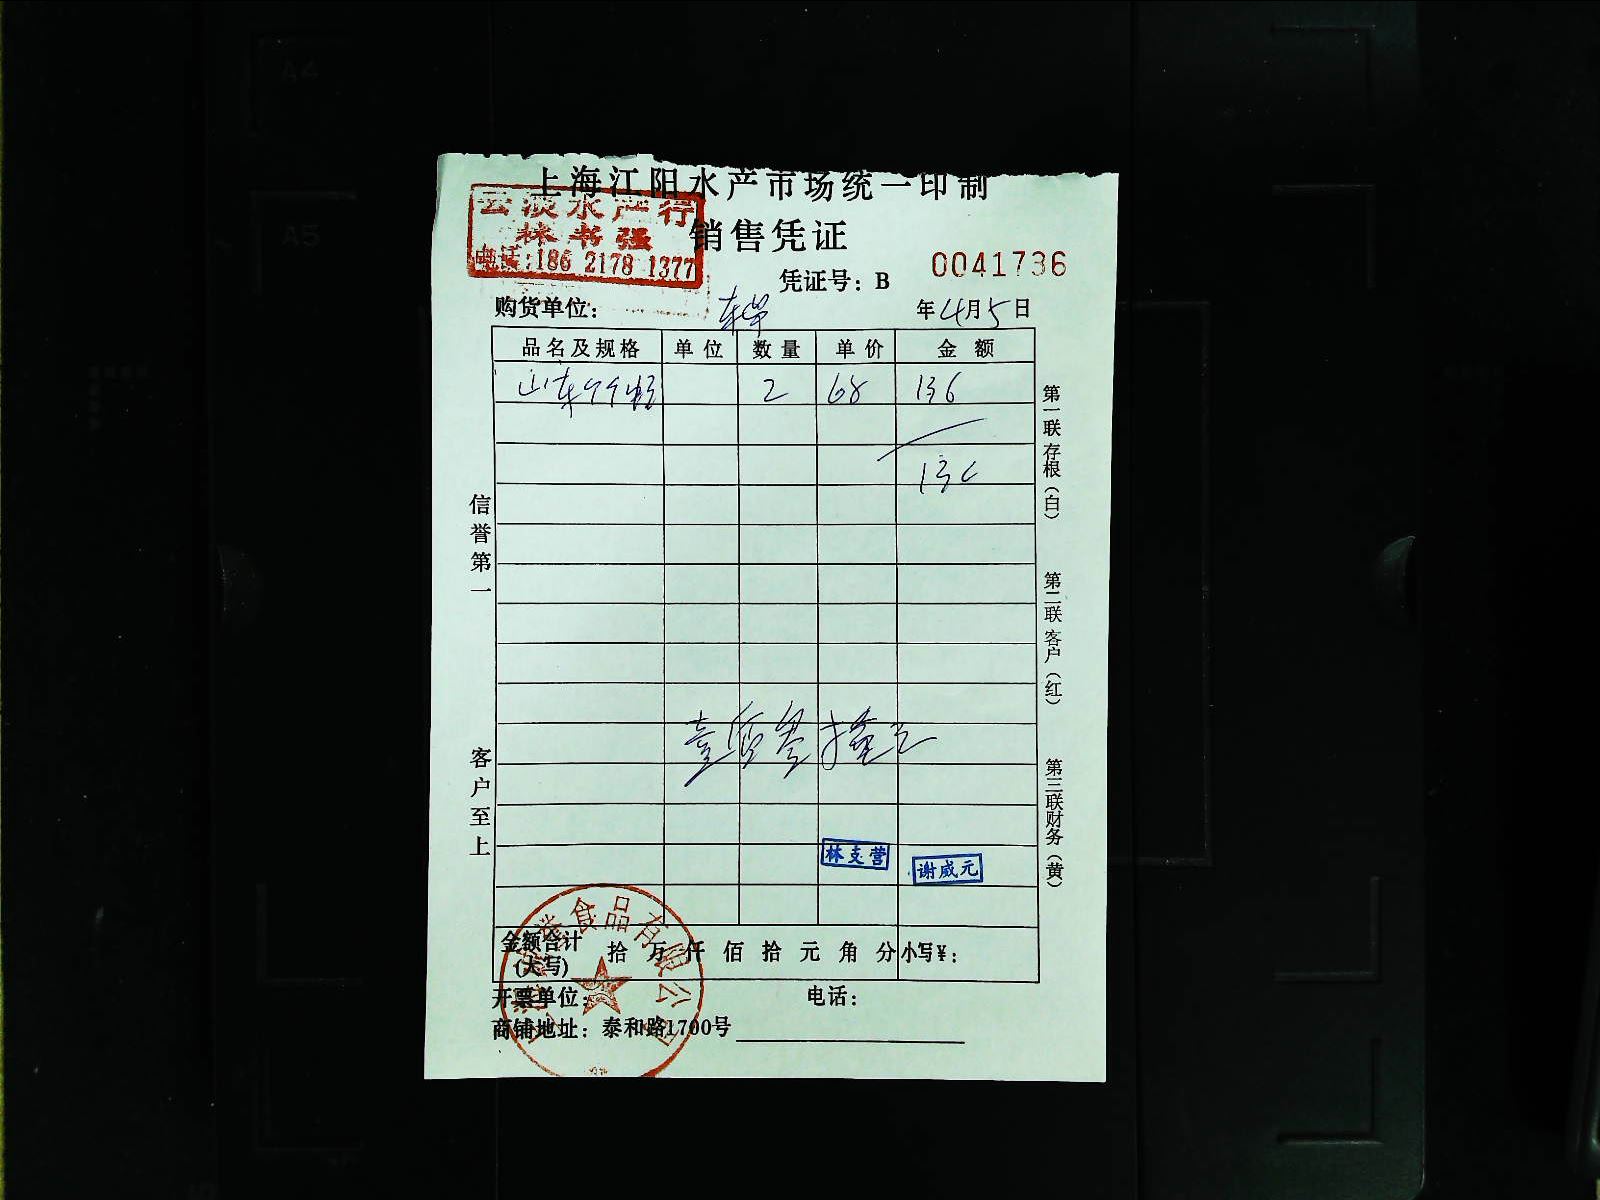 上海江阳水产市场统一印制
云淡水产行
林书强
电话:186 2178 1377
销售凭证
凭证号：B 0041736
购货单位： 年4月5日
品名及规格 单位 数量 单价 金额
山东 2 68 136
136
壹佰叁拾
信誉第一
客户至上
第一联存根（白）
第二联客户（红）
第三联财务（黄）
林支营
谢威元
金额合计(大写) 拾 万 仟 佰 拾 元 角 分 小写¥：
食品有限公司
开票单位： 电话：
商铺地址：泰和路1700号
A4
A5